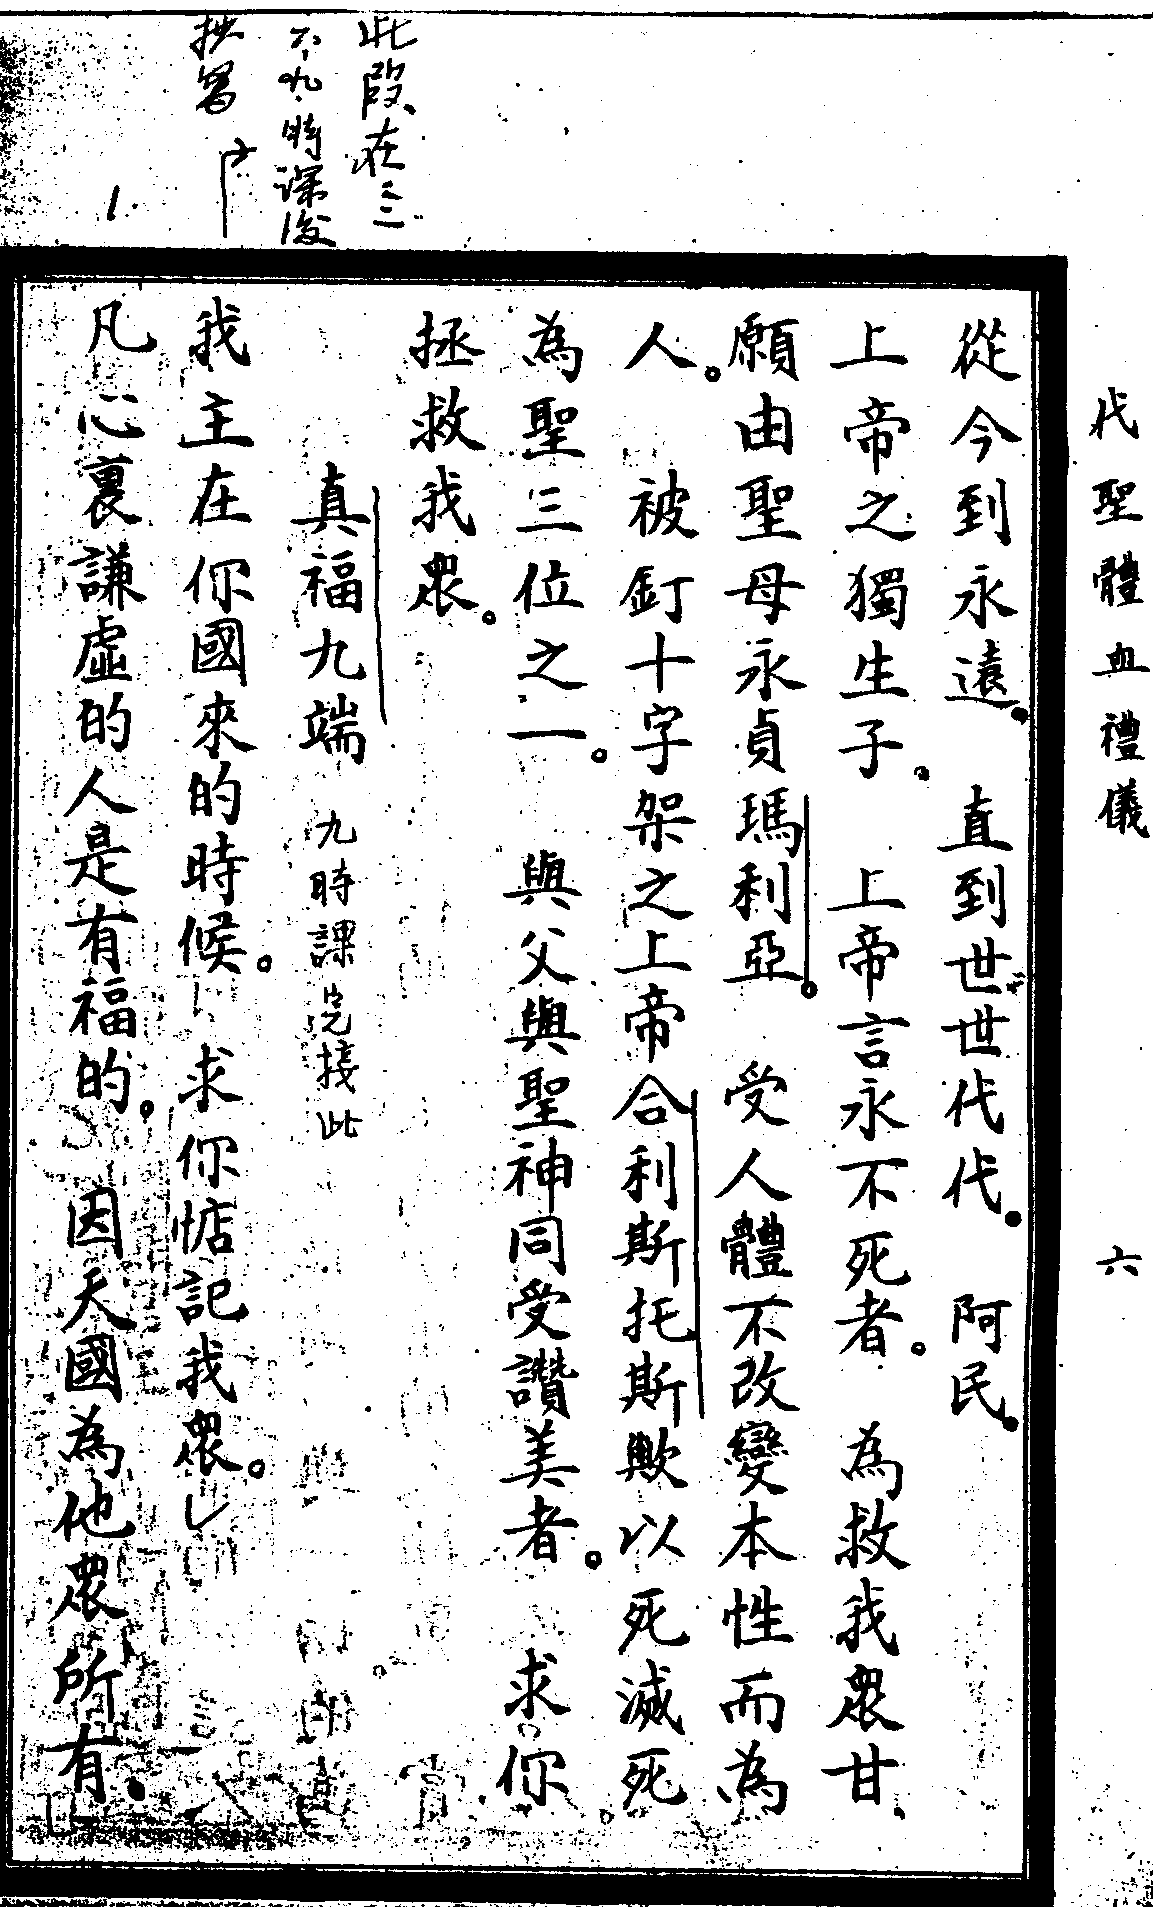 代聖體血禮儀 六
此段在三
六九時課後
从今到永遠。 直到世世代代。 阿民。
上帝之獨生子。 上帝言永不死者。 為救我眾甘、
願由聖母永貞瑪利亞。 受人體不改變本性而為
人。 被釘十字架之上帝合利斯托斯歟以死滅死
為聖三位之一。 與父與聖神同受讚美者。 求你
拯救我眾。
真福九端 九時課完接此
我主在你國來的時候。 求你惦記我眾。
凡心裏謙虛的人是有福的。 因天國為他眾所有。